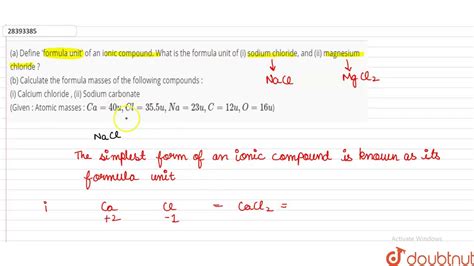 28393385
(a) Define 'formula unit' of an ionic compound. What is the formula unit of (i) sodium chloride, and (ii) magnesium
chloride ?
NaCl MgCl2
(b) Calculate the formula masses of the following compounds :
(i) Calcium chloride , (ii) Sodium carbonate
(Given : Atomic masses : Ca = 40u, Cl = 35.5u, Na = 23u, C = 12u, O = 16u)
NaCl
The simplest form of an ionic compound is known as its
formula unit
i Ca Cl = CaCl2 =
+2 -1
Activate Windows
doubtnut